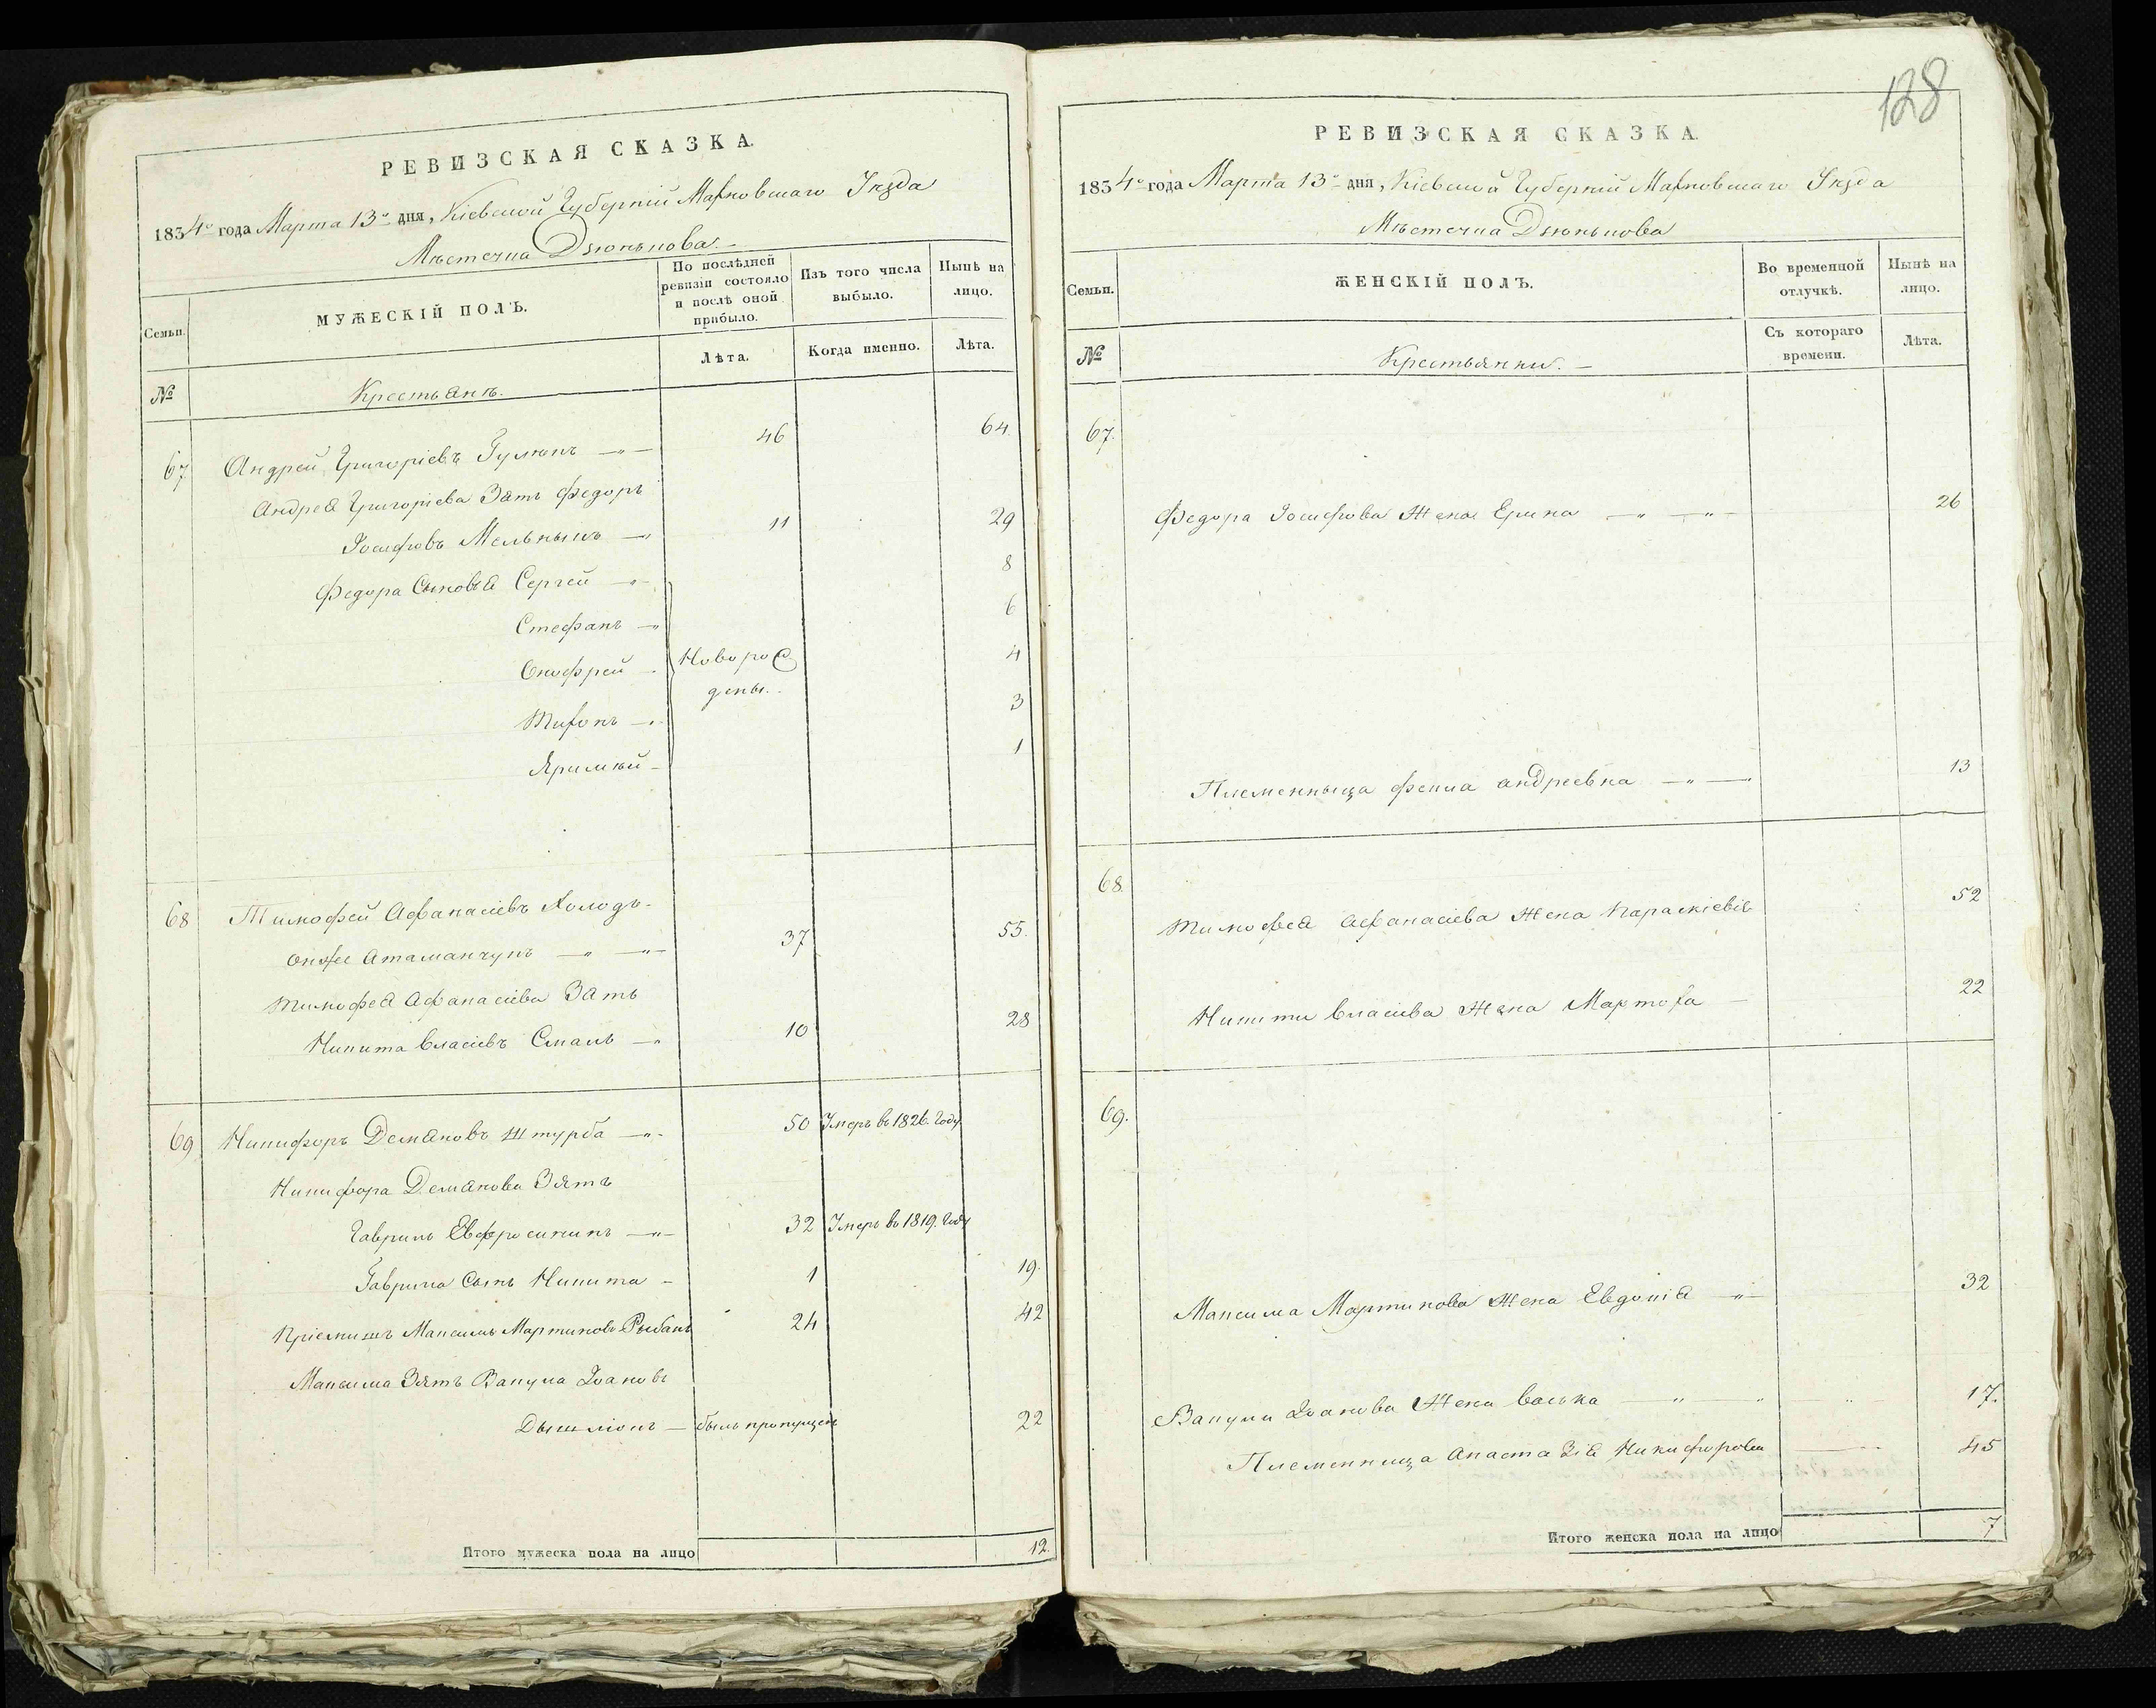 РЕВИЗСКАЯ СКАЗКА.
1834го года Марта 13го дня, Кіевской Губерніи Махновскаго Уезда
Мѣстечка Дзюнькова.
Семьи.
МУЖЕСКІЙ ПОЛЪ.
По послѣдней ревизіи состояло и послѣ оной прибыло.
Изъ того числа выбыло.
Нынѣ на лицо.
Лѣта.
Когда именно.
Лѣта.
№
Крестьянъ.
67 Андрей Григоріевъ 46 64.
Андрея Григоріева Зять Федоръ
Іосифовъ Мельникъ 11 29
Федора Сыновья Сергей 8
Стефанъ 6
Онофрей Новорож 4
дены.
Миронъ 3
1
68 Тимофей Афанасіевъ Холодъ
онже Атаманчукъ 37 55.
Тимофея Афанасіева Зять
Никита Власіевъ 10 28
69 Никифоръ Демяновъ Штурба 50 Умеръ въ 1826. Году
Никифора Демянова Зять
Гаврилъ Евфросининъ 32 Умеръ въ 1819. Году
Гаврила Сынъ Никита 1 19.
Пріемышъ Максимъ Мартиновъ Рыбакъ 24 42
Максима Зять Вакула Іоановъ
былъ пропущенъ 22
Итого мужеска пола на лицо 12.
128
РЕВИЗСКАЯ СКАЗКА.
1834го года Марта 13го дня, Кіевской Губерніи Махновскаго Уезда
Мѣстечка Дзюнькова
Семьи.
ЖЕНСКІЙ ПОЛЪ.
Во временной отлучкѣ.
Нынѣ на лицо.
№
Крестьянки.
Съ котораго времени.
Лѣта.
67.
Федора Іосифова Жена Ерина 26
Племенныца Фекла Андреевна 13
68
Тимофея Афанасіева Жена Параскіевія 52
Никиты Власіева Жена Мартоха 22
69.
Максима Мартинова Жена Евдокія 32
Вакулы Іоанова Жена Васька 17.
Племенница Анастазія Никифорова 45
Итого женска пола на лицо 7